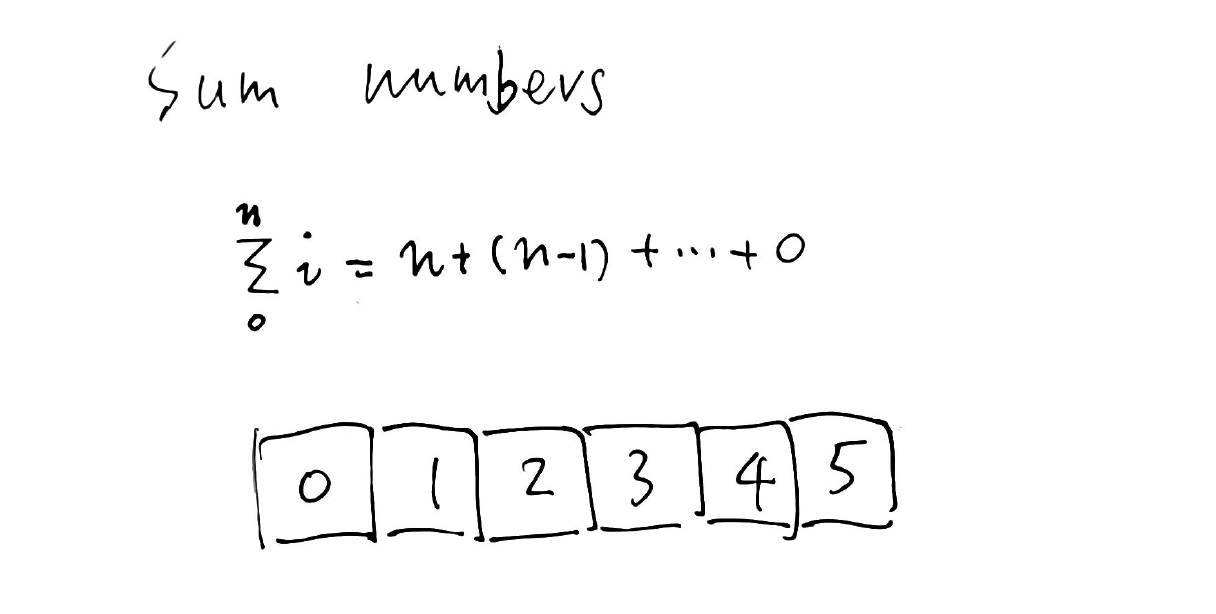 Sum numbers
n
∑ i = n + (n-1) + ... + 0
0
0 1 2 3 4 5